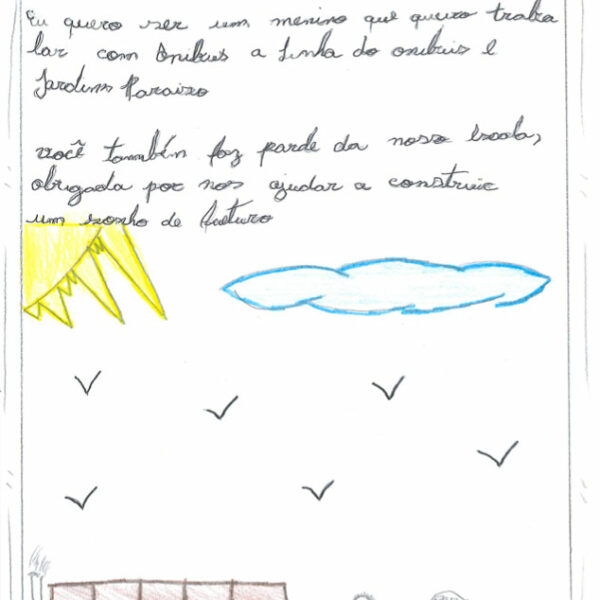 Eu quero ser um menino que queiro traba
lar com Ônibus a Linha do onibuis e
Jardins Paraizo
você também faz parde da nossa escola,
obrigada por nos ajudar a construir
um sonho de futuro